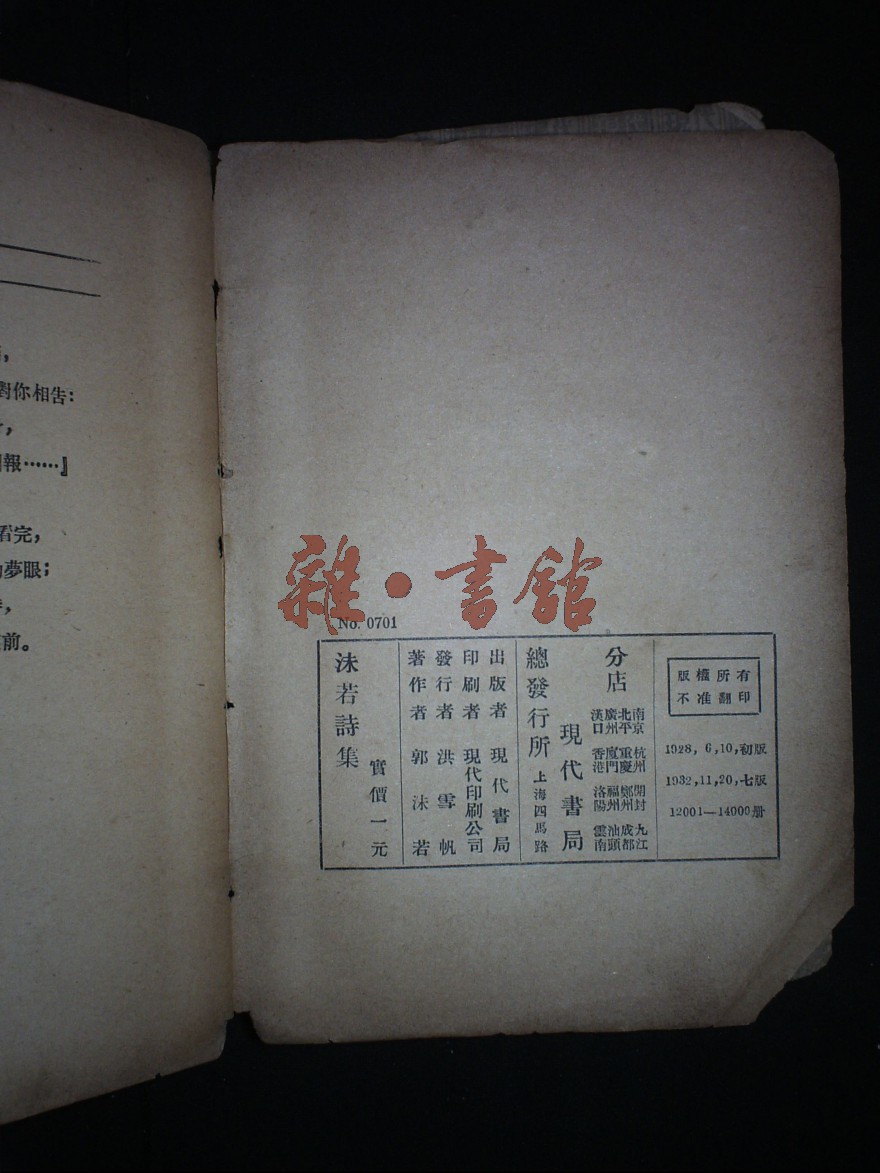 對你相告：
報……』
看完，
夢眼；
前。
雜・書館
No. 0701
版權所有
不准翻印
1928, 6, 10, 初版
1932, 11, 20, 七版
12001—14000册
分店
南京 杭州 開封 九江
北平 重慶 鄭州 成都
廣州 廈門 福州 汕頭
漢口 香港 洛陽 雲南
現代書局
總發行所 上海四馬路
出版者 現代書局
印刷者 現代印刷公司
發行者 洪雪帆
著作者 郭沫若
沫若詩集
實價一元